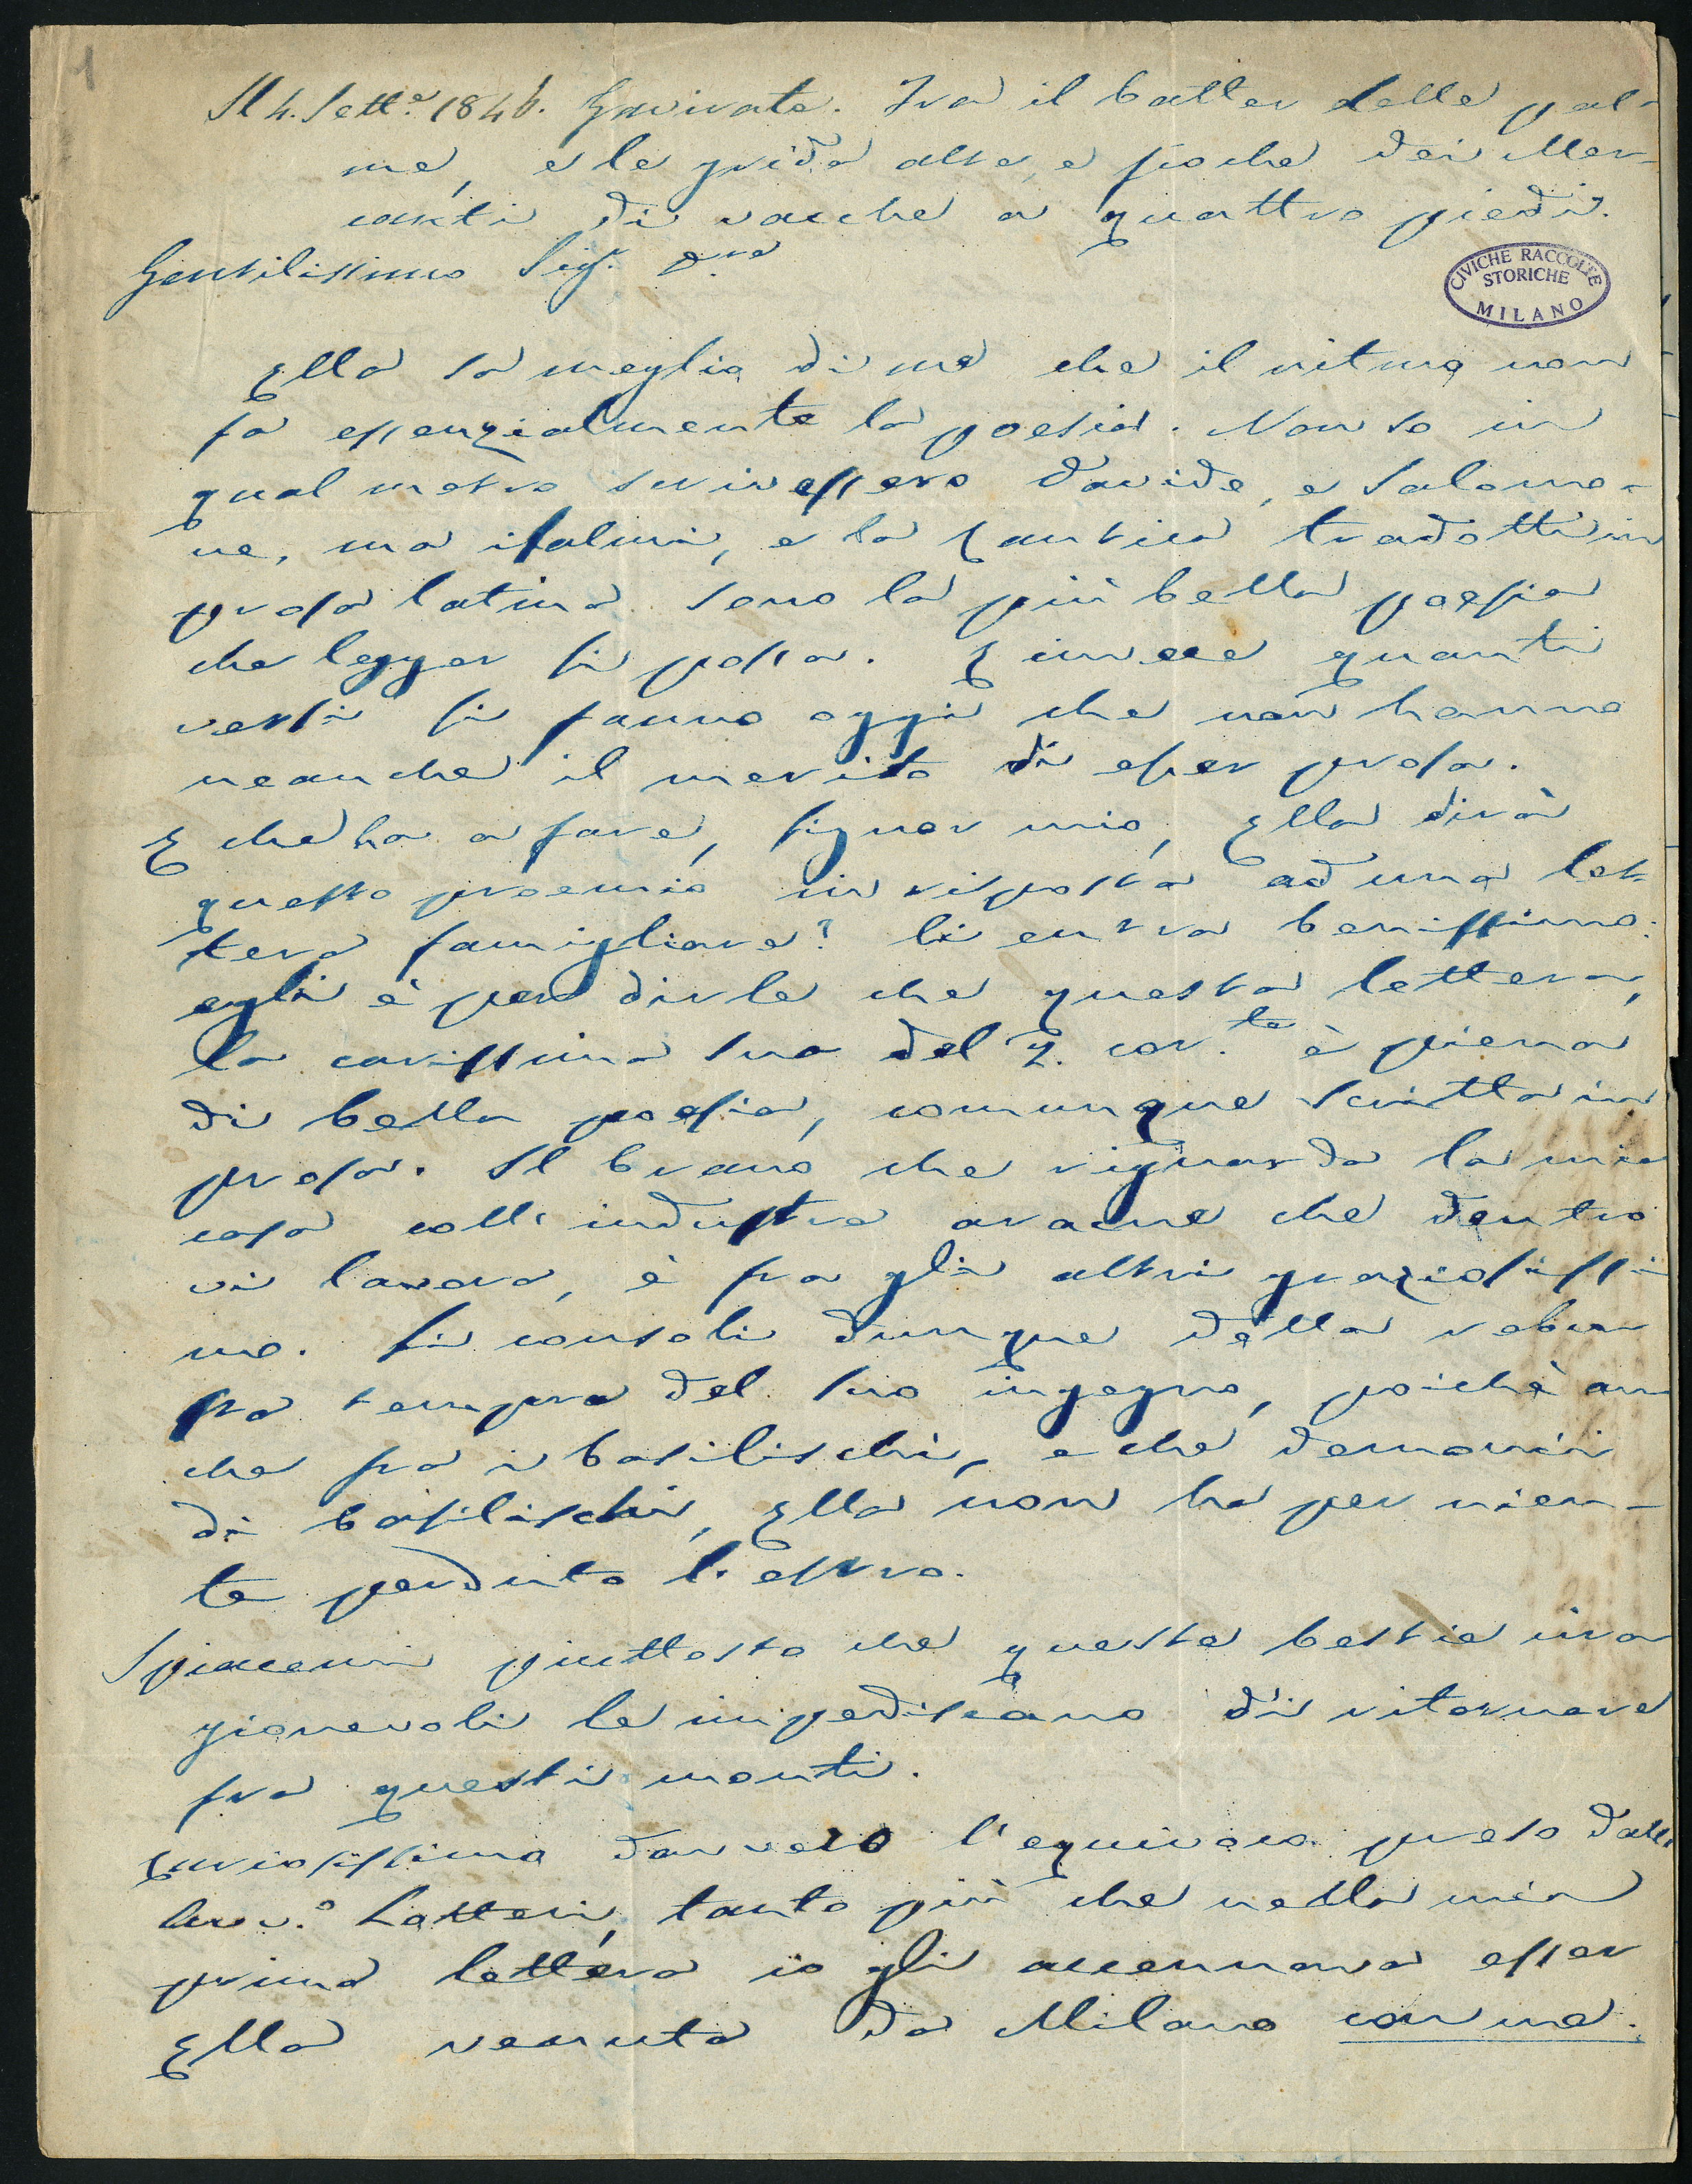 1
Il 4. Sett.e 1846. Gavirate. Fra il batter delle pal-
me, e le grida alte, e fioche dei Mer-
canti di vacche a quattro piedi.
Gentilissimo Sig.r
CIVICHE RACCOLTE
STORICHE
MILANO
Ella sa meglio di me che il ritmo non
fa essenzialmente la poesia. Non so in
qual metro scrivessero Davide, e Salomo-
ne, ma i salmi, e la Cantica tradotti in
prosa latina sono la più bella poesia
che legger si possa. E invece quanti
versi si fanno oggi che non hanno
neanche il merito di esser prosa.
E che ha a fare, signor mio, Ella dirà
questo proemio in risposta ad una let-
tera famigliare? Ci entra benissimo:
egli è per dirle che questa lettera,
la carissima sua del 2. cor.te è piena
di bella poesia, comunque scritta in
prosa. Il brano che riguarda la mia
casa coll'industre aracne che dentro
vi lavora, è fra gli altri graziosissi-
mo. Si consoli dunque della robu
sta tempra del suo ingegno, poichè an
che fra i basilischi, e che demonii
di basilischi, Ella non ha per nien-
te perduto l'estro.
Spiacemi piuttosto che queste bestie ira
gionevoli le impediscano di ritornare
fra questi monti.
Curiosissimo davvero l'equivoco preso dall'
Avv.o Lotteri, tanto più che nella mia
prima lettera io gli accennava esser
Ella venuta da Milano con me.